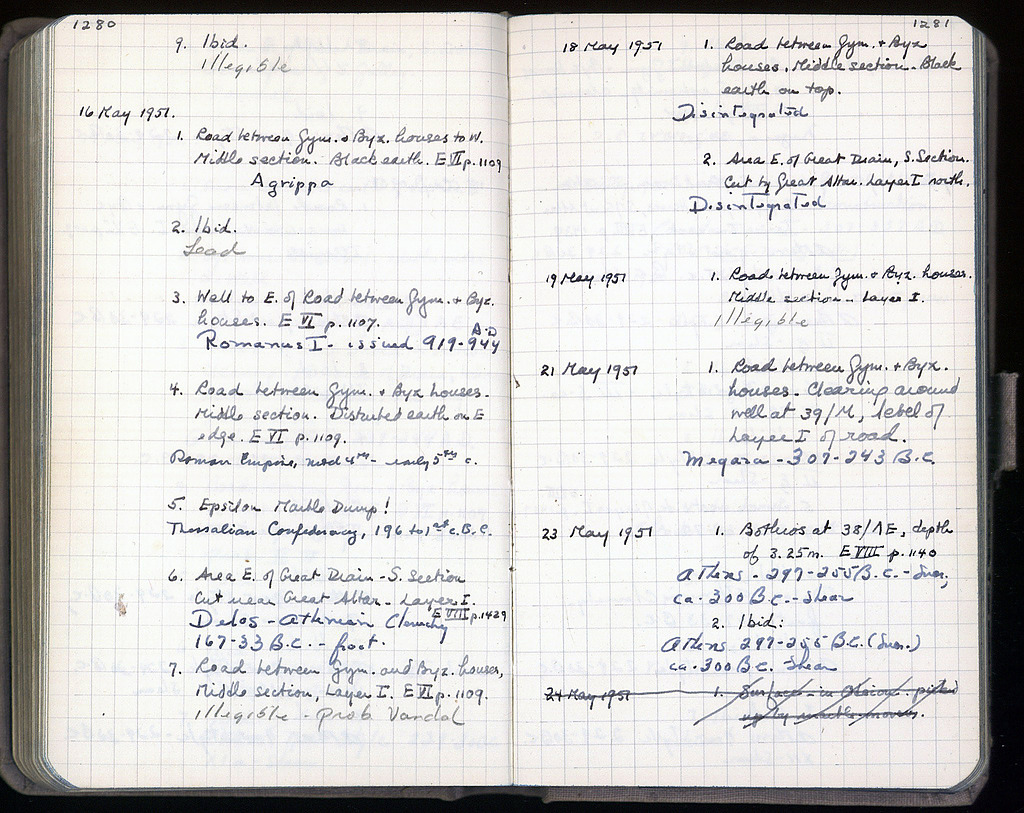 1280
9. Ibid.
Illegible
16 May 1951.
1. Road between Gym. + Byz. houses to W.
Middle section. Black earth. E VI p. 1109
Agrippa
2. Ibid.
Lead
3. Well to E. of Road between Gym. + Byz.
houses. E VI p. 1107.
Romanus I - issued 919-944 A.D
4. Road between Gym. + Byz houses.
Middle section. Disturbed earth on E
edge. E VI p. 1109.
Roman Empire, mid 4th - early 5th c.
5. Epsilon Marble Dump!
Thessalian Confederacy, 196 to 1st c. B.C.
6. Area E. of Great Drain - S. Section
Cut near Great Altar - Layer I.
E VIII p. 1429
Delos - Athenian Cleruchy
167-33 B.C. - front.
7. Road between Gym. and Byz. houses,
Middle section, Layer I. E VI p. 1109.
Illegible - Prob. Vandal
1281
18 May 1951 1. Road between Gym. + Byz
houses. Middle section - Black
earth on top.
Disintegrated
2. Area E. of Great Drain, S. Section.
Cut by Great Altar. Layer I north.
Disintegrated
19 May 1951 1. Road between Gym. + Byz. houses.
Middle section - Layer I.
Illegible
21 May 1951 1. Road between Gym. + Byz.
houses. Clearing around
well at 39/M, level of
Layer I of road.
Megara - 307-243 B.C.
23 May 1951 1. Bothros at 38/ΛE, depth
of 3.25m. E VIII p. 1140
Athens - 297-255 B.C. - Svor.,
ca. 300 B.C. - Shear
2. Ibid:
Athens 297-255 B.C. (Svor.)
ca. 300 B.C. Shear
24 May 1951 1. Surface - in Oboion. picked
up by marble-movers.